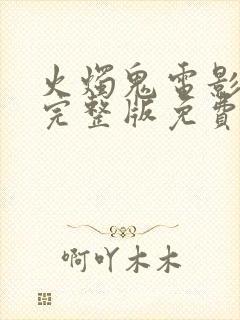 火燭鬼電影
完整版免費
啊吖木木